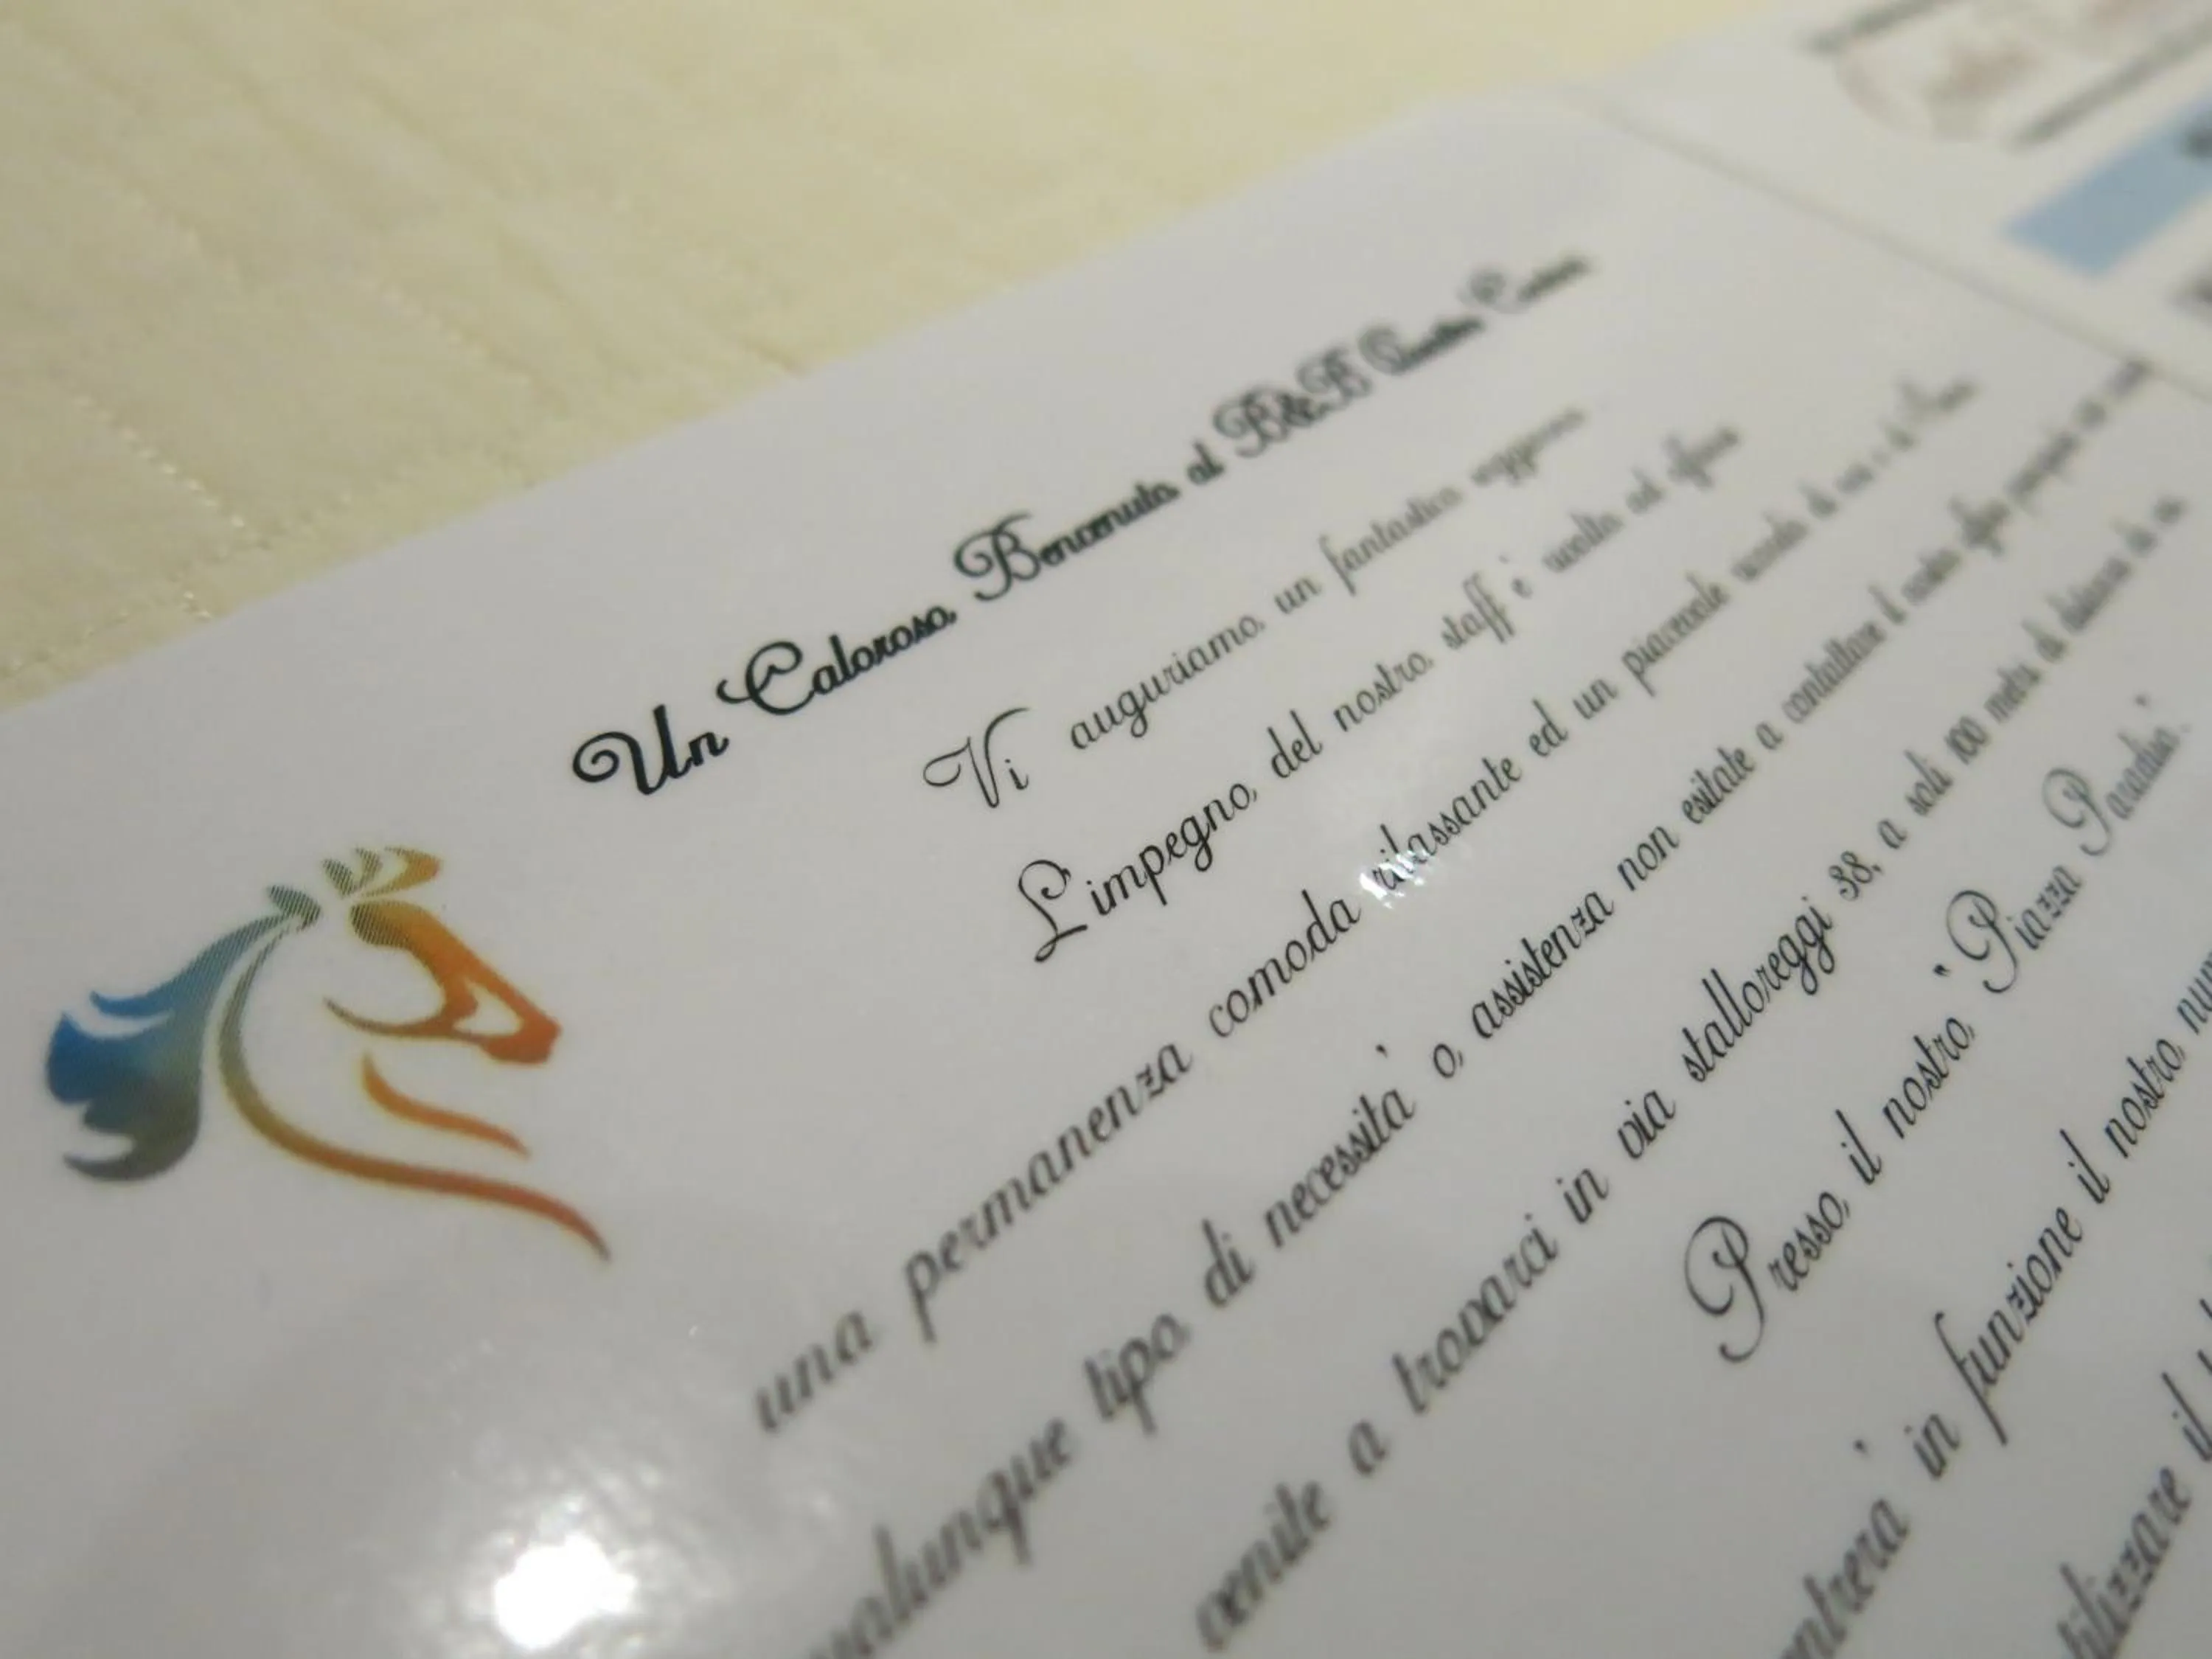 Un Caloroso Benvenuto al B&B
Vi auguriamo un fantastico soggiorno
L'impegno del nostro staff e' volto ad offrire
una permanenza comoda rilassante ed un piacevole
qualunque tipo di necessita' o assistenza non esitate a contattare il nostro
venite a trovarci in via stalloreggi 38, a soli 100 metri di distanza da
Presso il nostro "Piazza Paradiso".
entrera' in funzione il nostro
utilizzare il